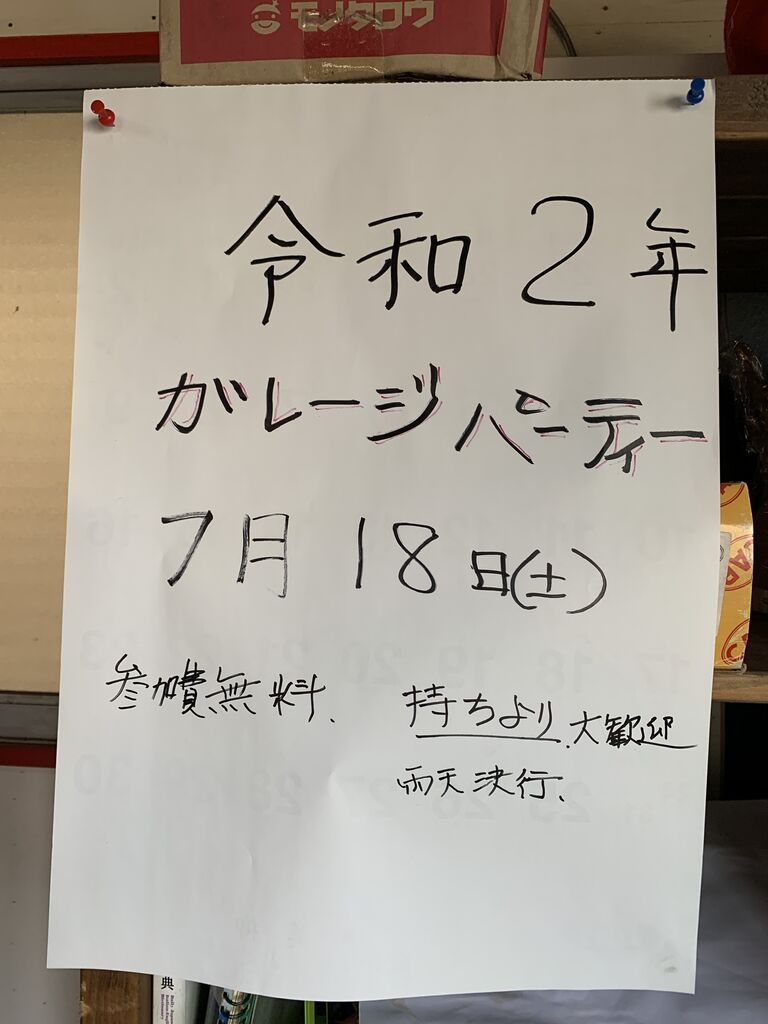 モノタロウ
令和2年
ガレージパーティー
7月18日(土)
参加費無料、 持ちより、大歓迎
雨天決行、
典